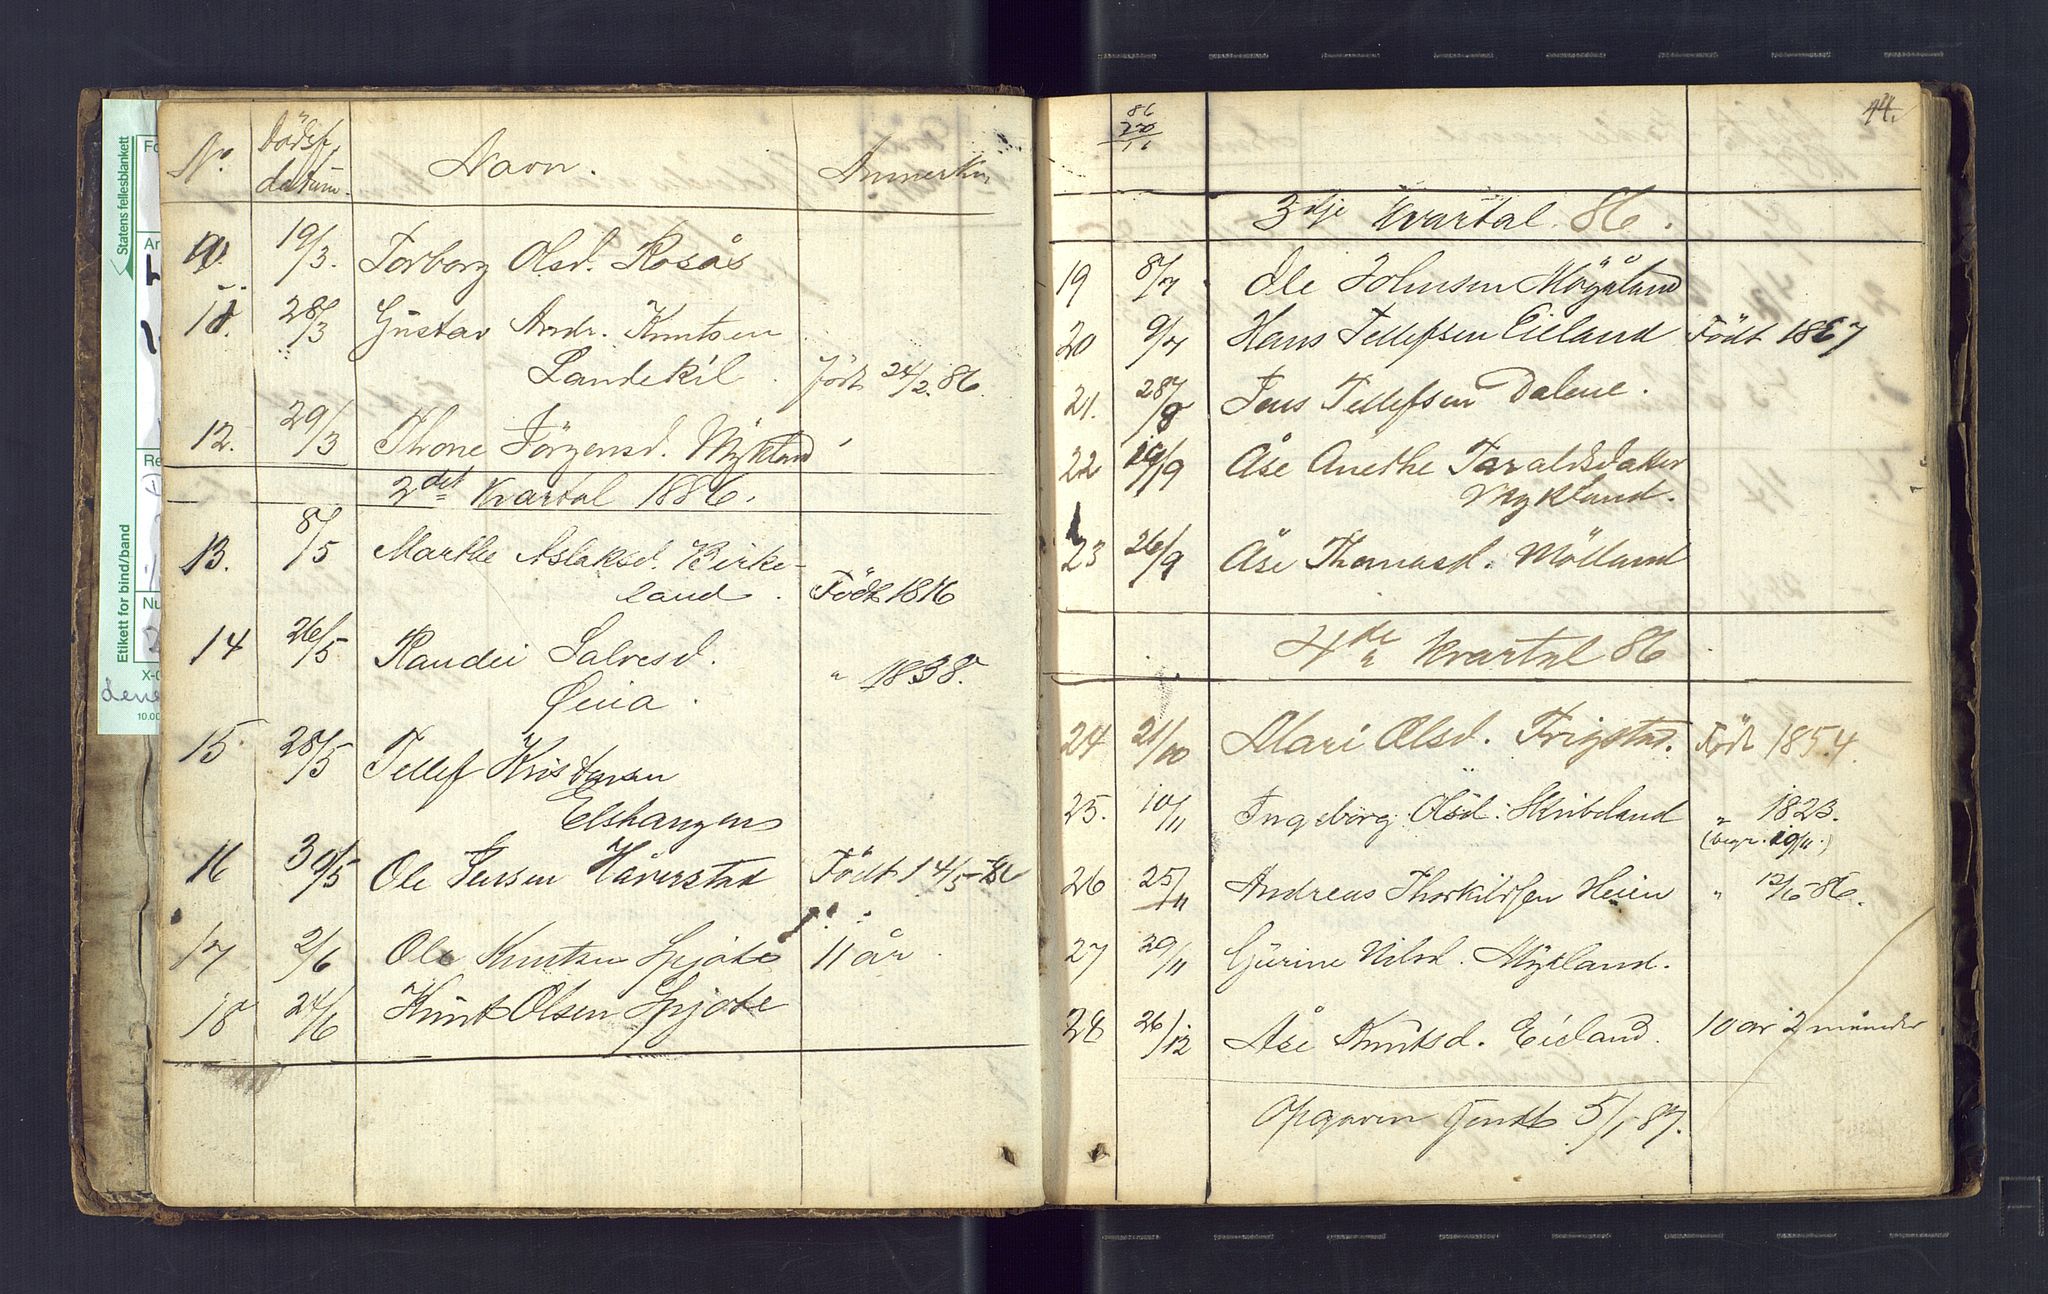 No. Dödsf. datum. Navn. Anmerkn
19/3. Torborg Olsd. Rosås
11. 28/3 Gustav Andr. Knutsen
Landekil. Födt 24/2.86.
12. 29/3 Thone Jörgensd. Mykland
2det Kvartal 1886.
13. 8/5 Marthe Aslaksd. Birke-
land. Födt 1816
14 26/5 Randei Salvesd.
Øena. " 1838.
15 28/5 Tellef Kristensen
Elshaugen
16 30/5 Ole Jensen Håverstad Födt 14/5-86
17 2/6 Ole Knutsen Spjote 11 år.
18 24/6 Knut Olsen Spjote
Statens fellesblankett
Etikett for bind/band
44.
86
3dje Kvartal 86.
19 8/7 Ole Johnsen Mögåland
20 9/7 Hans Tellefsen Eieland Födt 1867
21. 28/8 Jens Tellefsen Dalene.
22 19/9 Åse Anethe Taraldsdatter
Mykland.
23 26/9 Åse Thomasd. Mölland
4de Kvartal 86
24 21/10 Mari Olsd. Trigstad. Födt 1854.
25. 10/11 Ingeborg Olsd. Skribeland " 1823.
(begr. 19/11.)
26 25/11 Andreas Thorkildsen Heien " 12/6-86.
27 29/11 Gurine Nilsd. Mykland.
28 26/12 Åse Knutsd. Eieland. 10 år 2 måneder
Opgaven sendt 5/1-87.